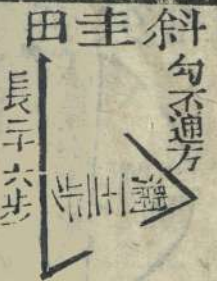 斜圭田
勾不通方
濶二十三步
長三十六步